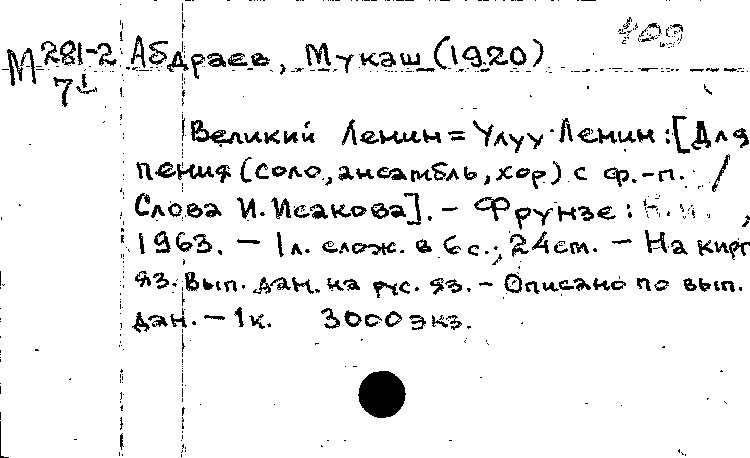 409
М 281-2 Абдраев, Мукаш (1920)
7
Великий Ленин = Улуу Ленин: [Для
пения (соло, ансамбль, хор) с ф.-п. /
Слова И. Исакова]. - Фрунзе: Б.и.,
1963. - 1 л. слож. в 6 с.; 24 cm. - На кирг
яз. Вып. дан. на рус. яз. - Описано по вып.
дан. - 1к. 3000 экз.